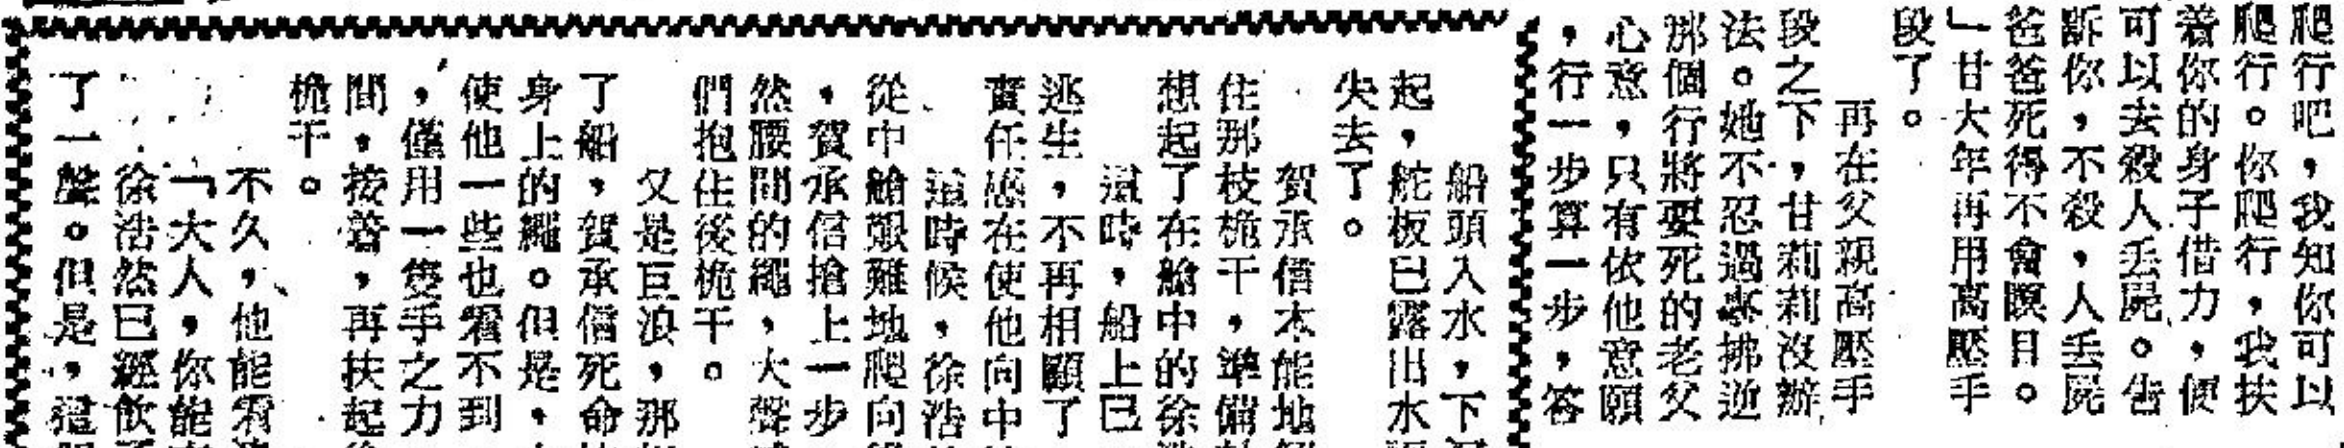 爬行吧，我知你可以
爬行。你爬行，我扶
着你的身子借力，便
可以去殺人丢屍。告
訴你，不殺，人丢屍
爸爸死得不會瞑目。
」甘大年再用高壓手
段了。
再在父親高壓手
段之下，甘莉莉沒辦
法。她不忍過事拂逆
那個行將要死的老父
心意，只有依他意願
，行一步算一步，答
船頭入水，下
起，舵板已露出水
失去了。
賀承信本能地
住那枝桅干，準備
想起了在艙中的徐
這時，船上已
逃生，不再相顧了
責任感在使他向中
這時候，徐浩
從中艙艱難地爬向
，賀承信搶上一步
然腰間的繩，大聲
們抱住後桅干。
又是巨浪，那
了船，賀承信死命
身上的繩。但是，
使他一些也看不到
，僅用一隻手之力
間，接着，再扶起
桅干。
不久，他能看
「大人，你能
徐浩然已經飲
了一聲。但是，這